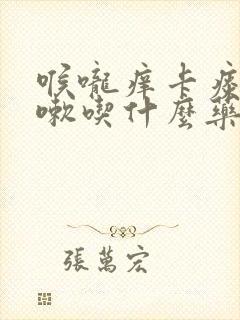 喉嚨痒卡痰
嗽喫什麼藥
張萬宏